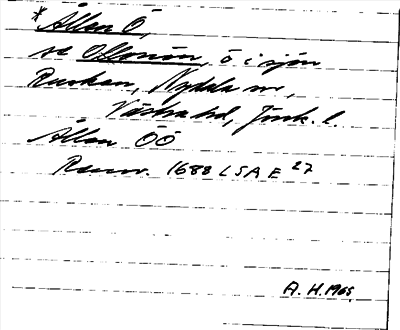 *Ållen Ö,
se Ollonön, ö i sjön
Rusken, Nydala sn,
Västra hd, Jönk. l.
Ållen Öö
Rannv. 1688 LSA E 27
A. H. 1965